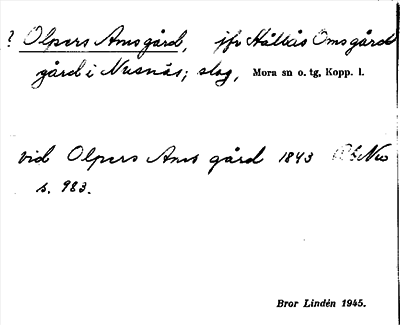 ? Olpers Ams gård, jfr Håltås Oms gård
gård i Nusnäs; slog, Mora sn o. tg, Kopp. l.
vid Olpers Ams gård 1843 Nus
s. 983.
Bror Lindén 1945.